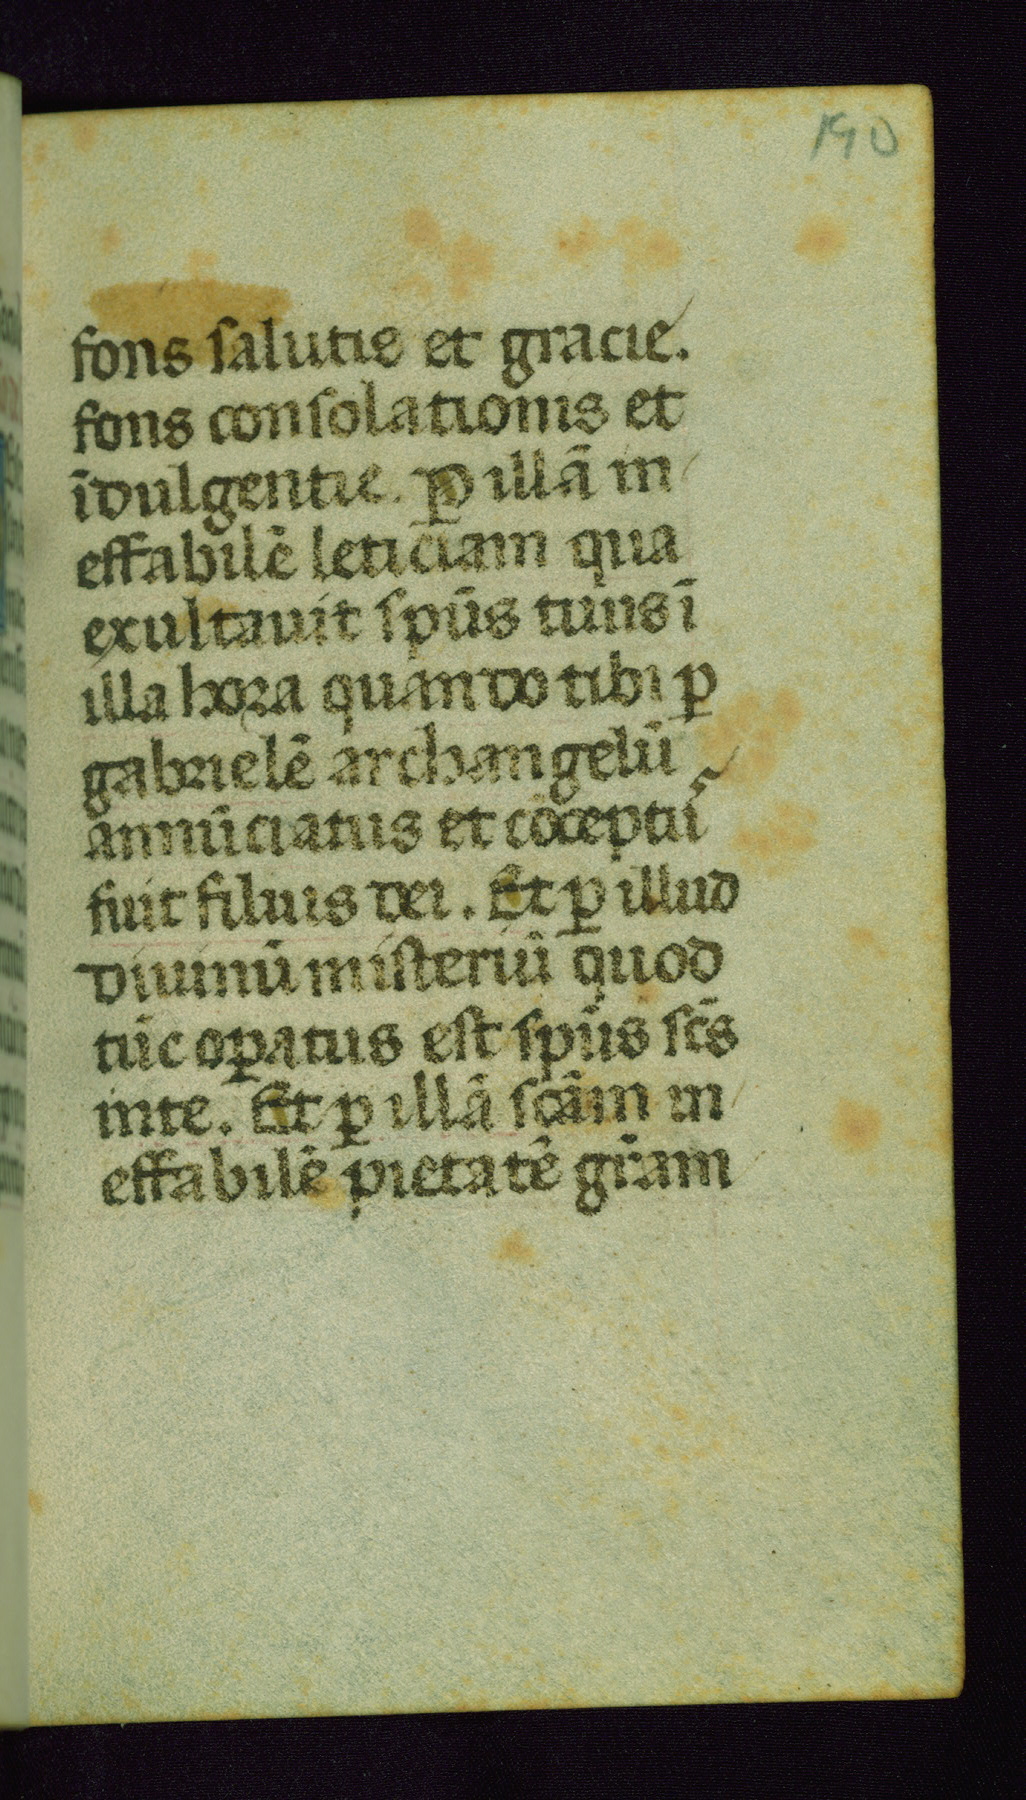 190
fons salutis et gracie.
fons consolationis et
īdulgentie. ꝑ illā in
effabilē leticiam qua
exultauit sp̄us tuus ī
illa hora quando tibi ꝑ
gabrielē archangelū
annūciatus et cōceptus
fuit filius dei. Et ꝑ illud
diuinū misteriū quod
tūc oꝑatus est sp̄us sc̄s
in te. Et ꝑ illā scām in
effabilē pietatē gr̄am